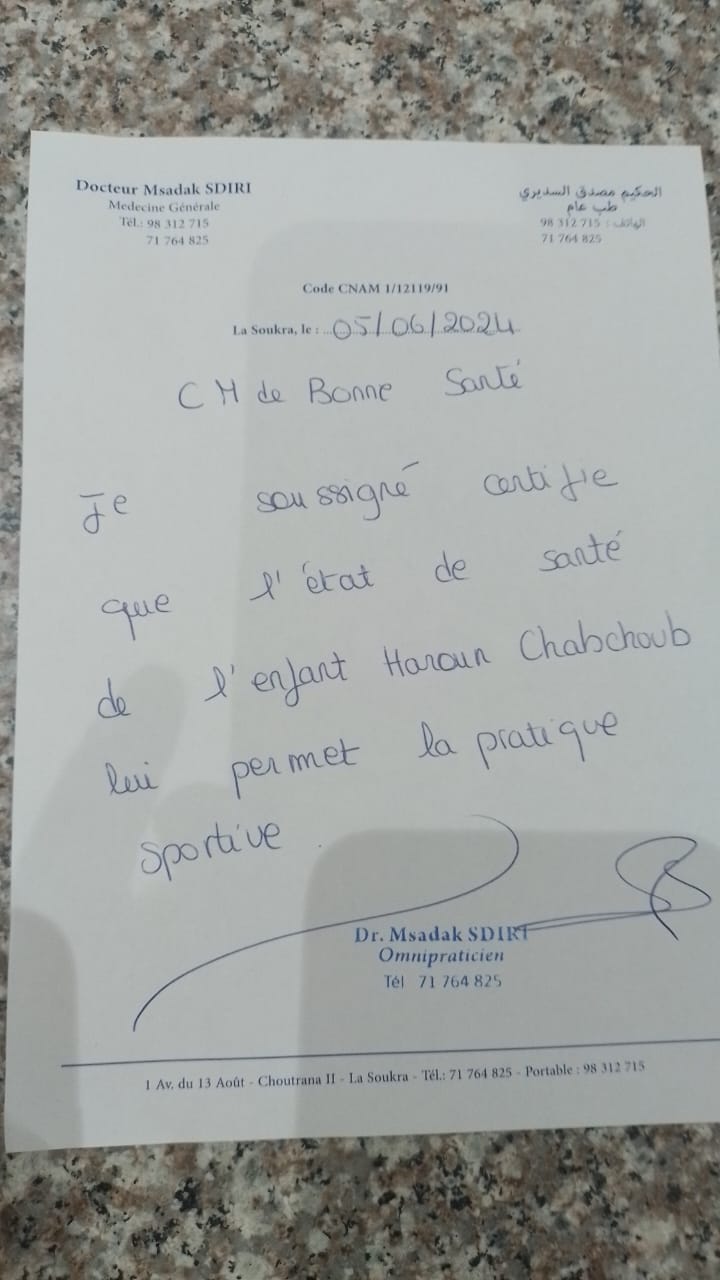 Docteur Msadak SDIRI
Medecine Générale
Tél.: 98 312 715
71 764 825
الحكيم مصدق السديري
طب عام
الهاتف : 98 312 715
71 764 825
Code CNAM 1/12119/91
La Soukra, le : 05/06/2024
CM de Bonne Santé
Je soussigné certifie
que l'état de santé
de l'enfant Haroun Chabchoub
lui permet la pratique
sportive.
Dr. Msadak SDIRI
Omnipraticien
Tél 71 764 825
1 Av. du 13 Août - Choutrana II - La Soukra - Tél.: 71 764 825 - Portable : 98 312 715